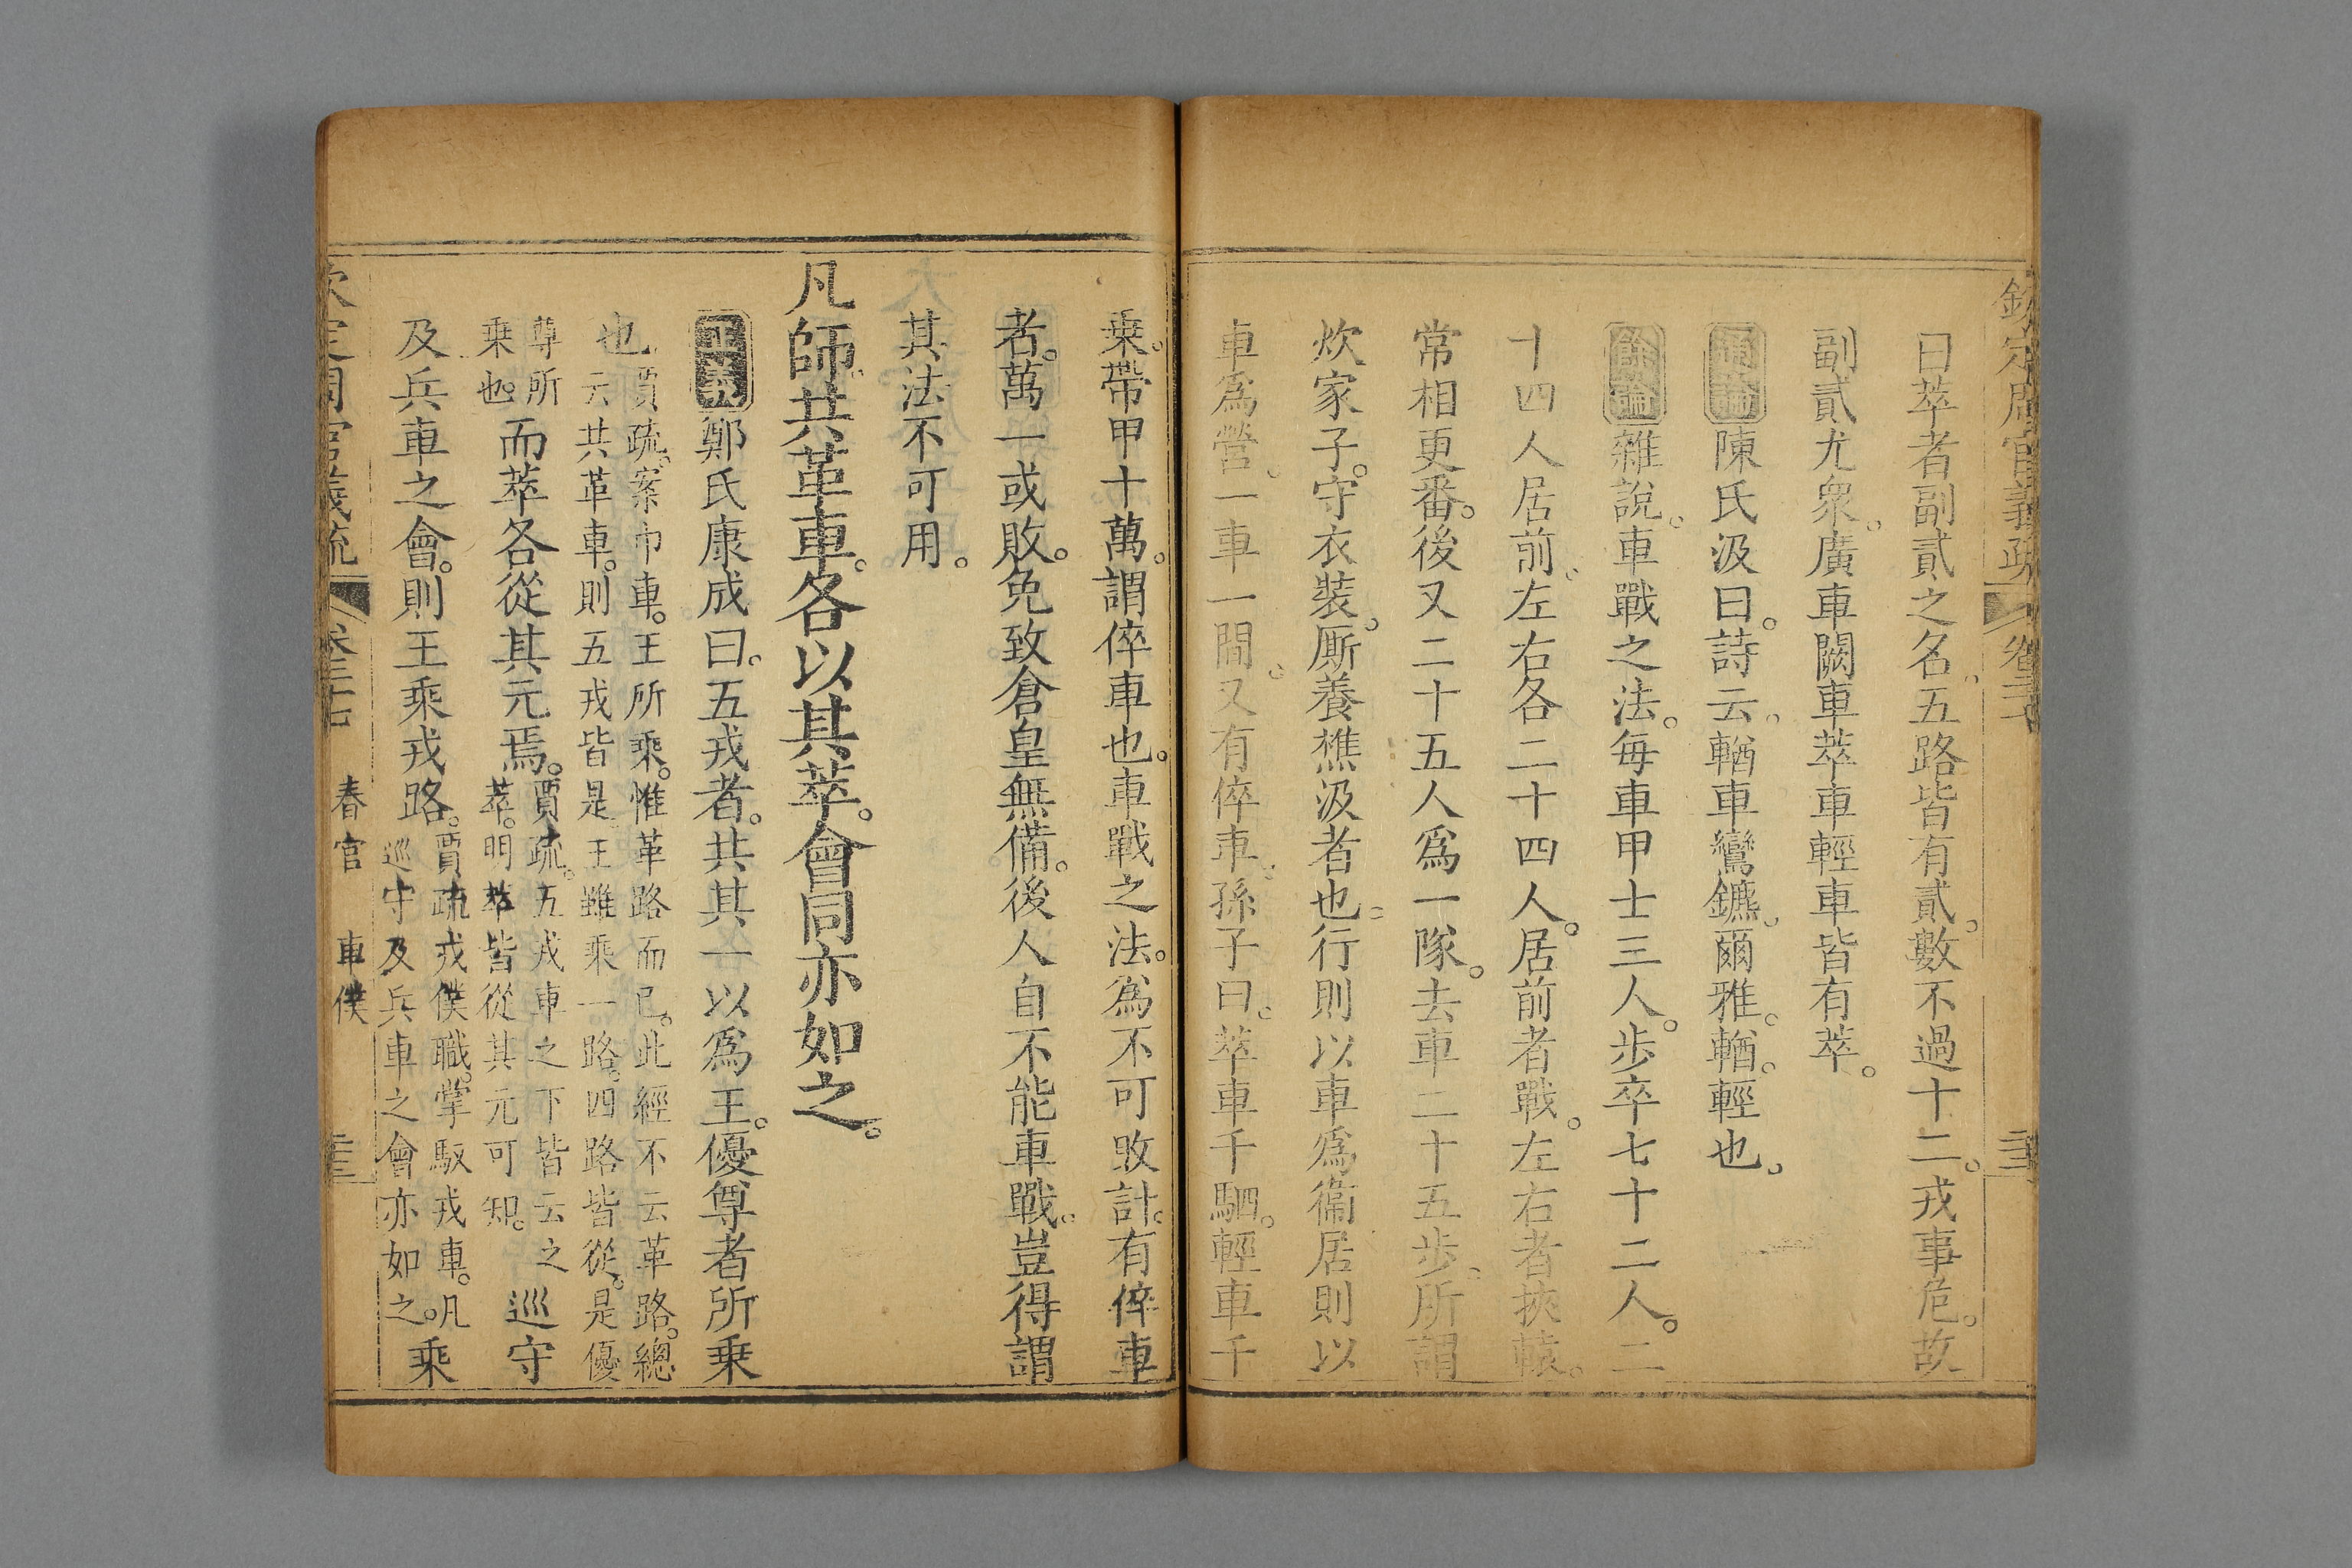 欽定周官義疏 卷三十七
曰萃者副貳之名五路皆有貳。數不過十二。戎事危。故
副貳尤衆。廣車闕車萃車輕車皆有萃。
通論陳氏汲曰。詩云。輶車鸞鑣。爾雅。輶。輕也。
餘論雜說。車戰之法。每車甲士三人。步卒七十二人。二
十四人居前。左右各二十四人。居前者戰。左右者挾轅。
常相更番。後又二十五人爲一隊。去車二十五步。所謂
炊家子。守衣裝。厮養樵汲者也。行則以車爲衞居則以
車爲營。一車一間。又有倅車。孫子曰。萃車千駟。輕車千
乗。帶甲十萬。謂倅車也。車戰之法。爲不可敗計。有倅車
者。萬一或敗。免致倉皇無備。後人自不能車戰。豈得謂
其法不可用。
凡師共革車。各以其萃。會同亦如之。
正義鄭氏康成曰。五戎者。共其一以爲王。優尊者所乗
也。賈疏。案巾車。王所乘。惟革路而已。此經不云革路。總
云共革車。則五戎皆是王雖乘一路。四路皆從。是優
尊所
乗也。
而萃各從其元焉。
賈疏。五戎車之下皆云之
萃。明萃皆從其元可知。
巡守
及兵車之會。則王乘戎路。
賈疏戎僕職。掌馭戎車。凡
巡守及兵車之會亦如之。
乘
欽定周官義疏 卷三十七 春官 車僕